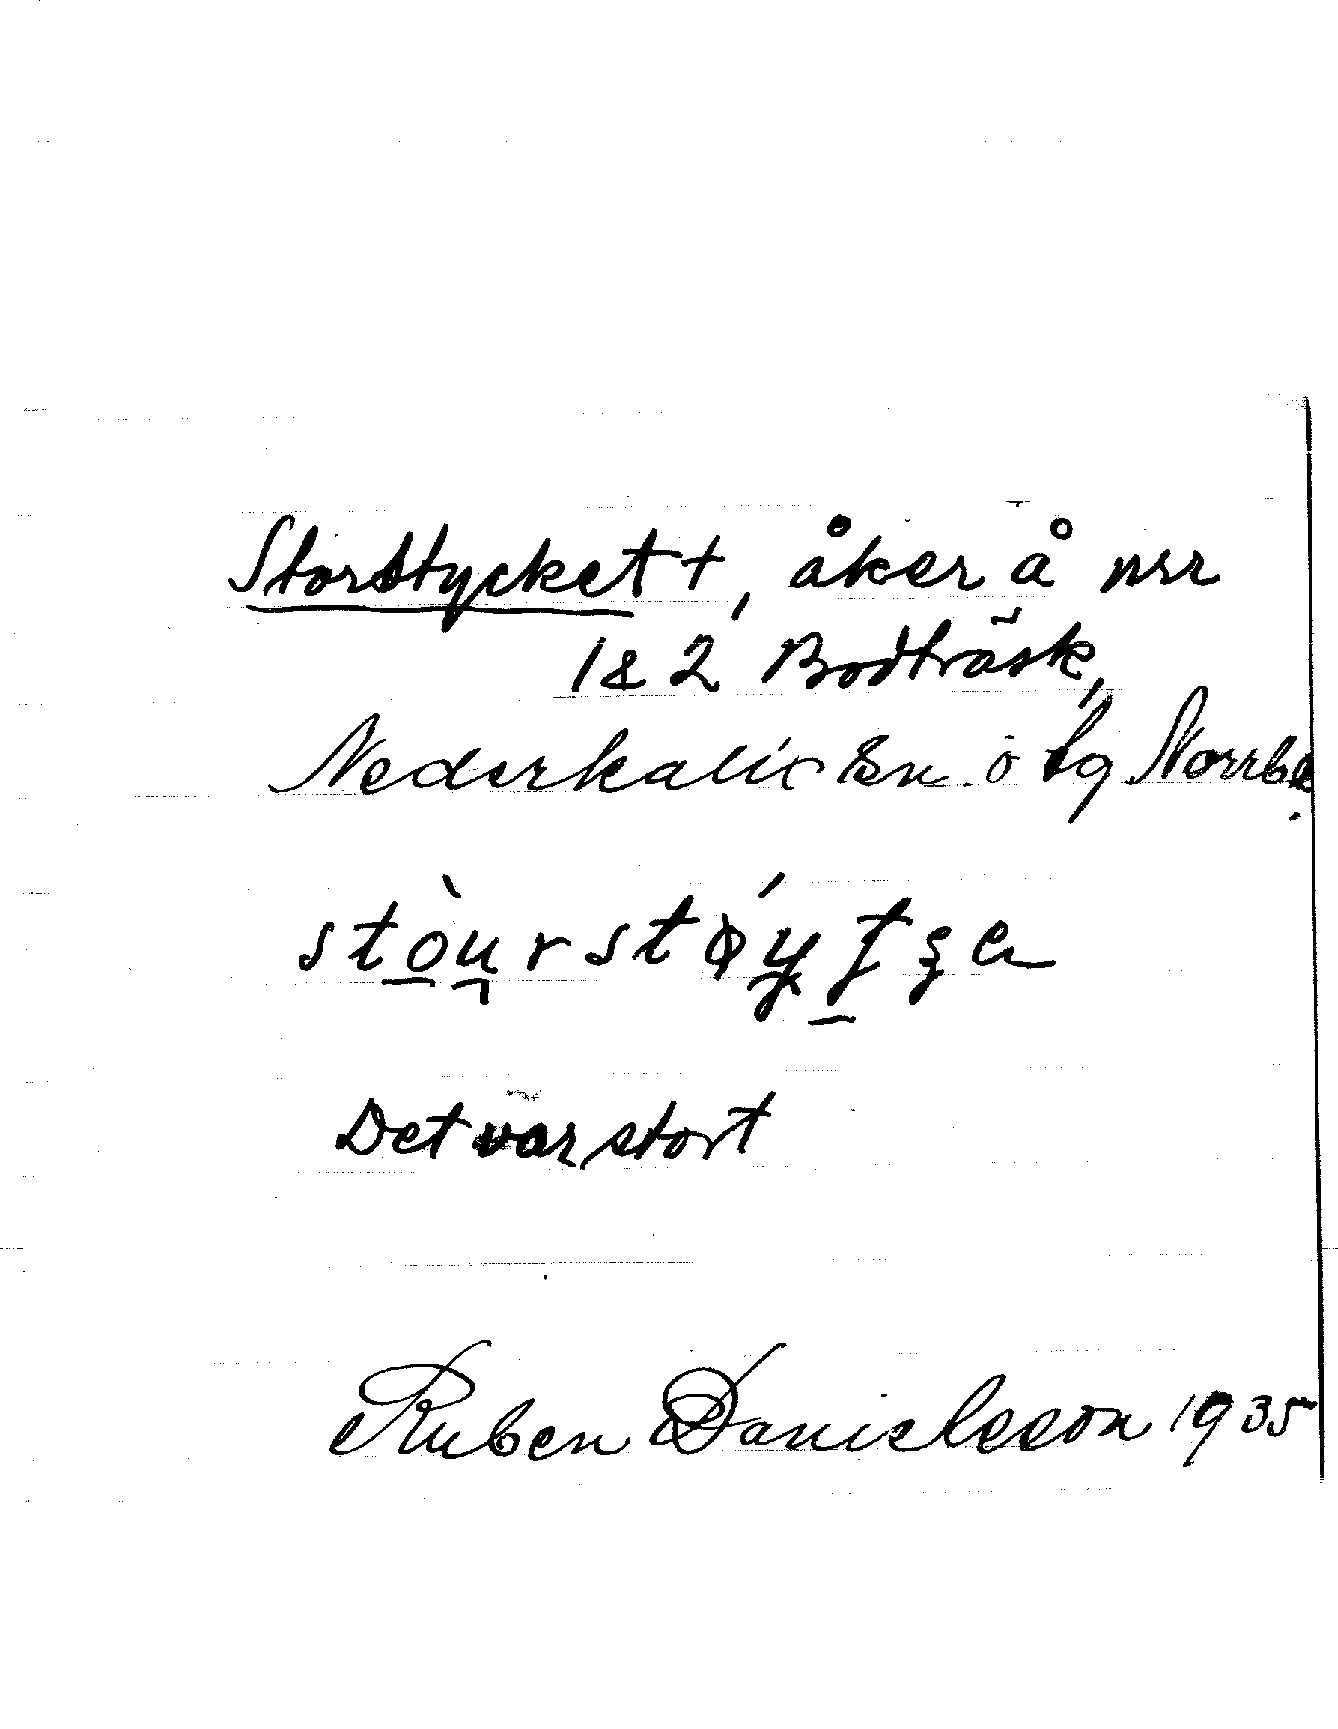 Storstycket +, åker å nrr
1 & 2 Bodträsk,
Nederkalix sn o tg Norrb.
Det var stort
Ruben Danielsson 1935